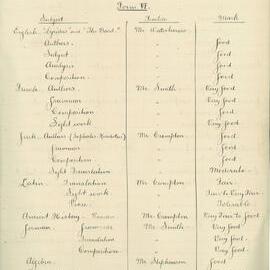 Form VI
Subject Teacher Mark
English "Lycidas" and "The Bard" Mr Waterhouse
Authors. " Good
Subject " Good
Analysis " Good
Composition " Good
French Authors. Mr Smith Very Good
Grammar " Very Good
Composition " Good
Sight work " Very Good
Greek Authors (Sophocles, ) Mr Crompton Good
Grammar " Good
Composition " Good
Sight Translation " Moderate
Latin Translation Mr Crompton Fair
Sight work " Fair to Very Fair
Prose " Tolerable
Ancient History - Roman Mr Crompton Very Fair to Good
German Grammar Mr Smith Very Good
Translation " Very Good
Composition " Very Good
Algebra Mr Stephenson Good